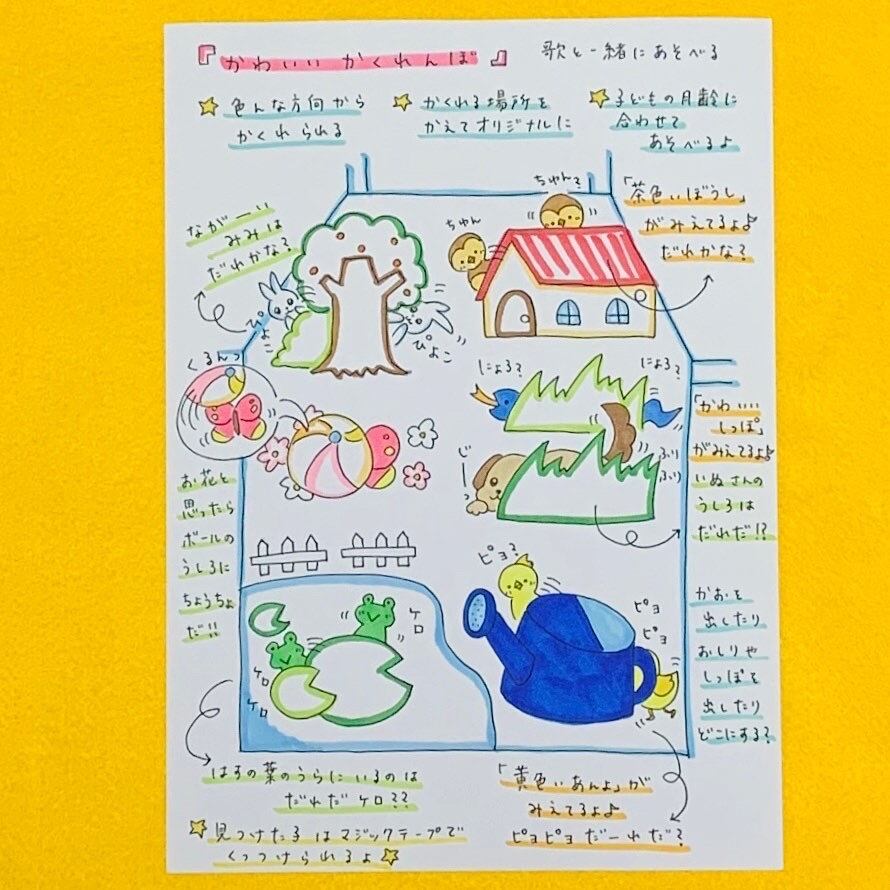 『かわいい かくれんぼ』
歌と一緒にあそべる
☆ 色んな方向から
かくれられる
☆ かくれる場所を
かえてオリジナルに
☆ 子どもの月齢に
合わせて
あそべるよ
ながーい
みみは
だれかな?
ぴょこ
ぴょこ
ちゅん
ちゅん?
「茶色いぼうし」
がみえてるよ♪
だれかな?
くるんっ
お花と
思ったら
ボールの
うしろに
ちょうちょ
だ!!
にょろ?
にょろ?
じーっ
ふり
ふり
「かわいい
しっぽ」
がみえてるよ♪
いぬさんの
うしろは
だれだ!?
ケロ
ケロ
ケロ
ピヨ?
ピヨ
ピヨ
かおを
出したり
おしりや
しっぽを
出したり
どこにする?
はすの葉のうらにいるのは
だれだケロ??
☆ 見つけた子はマジックテープで
くっつけられるよ☆
「黄色いあんよ」が
みえてるよ♪
ピヨピヨだーれだ?